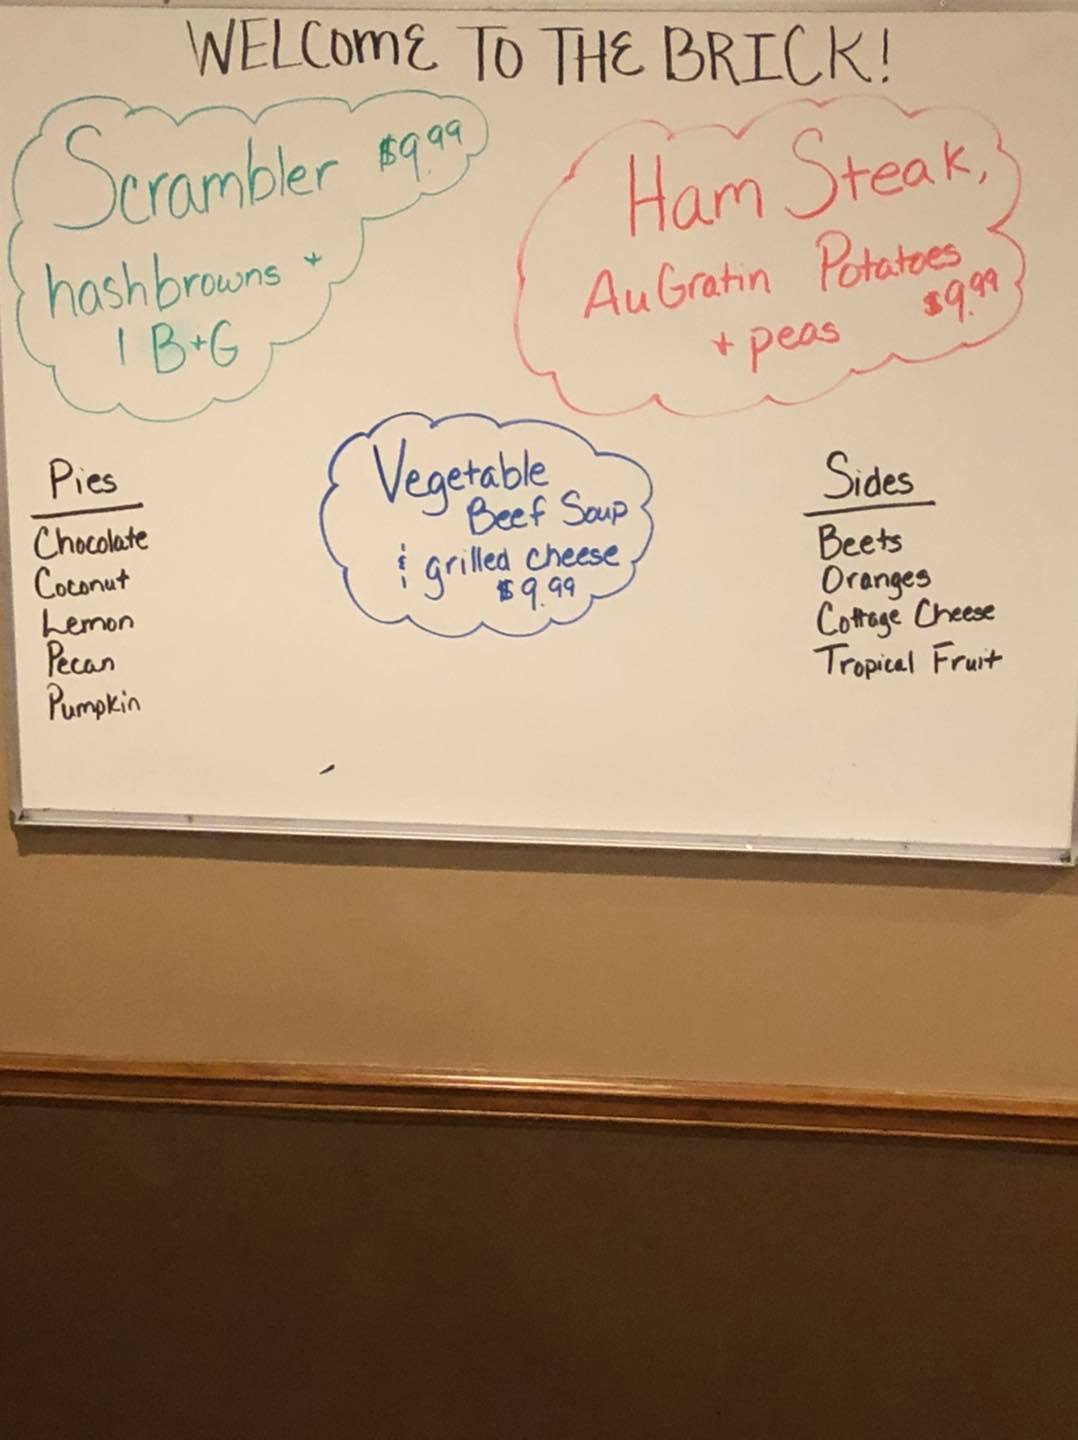 WELCOME TO THE BRICK!
Scrambler $9.99
hashbrowns +
1 B+G
Ham Steak,
Au Gratin Potatoes
$9.99
+ peas
Vegetable
Beef Soup
& grilled cheese
$9.99
Pies
Chocolate
Coconut
Lemon
Pecan
Pumpkin
Sides
Beets
Oranges
Cottage Cheese
Tropical Fruit